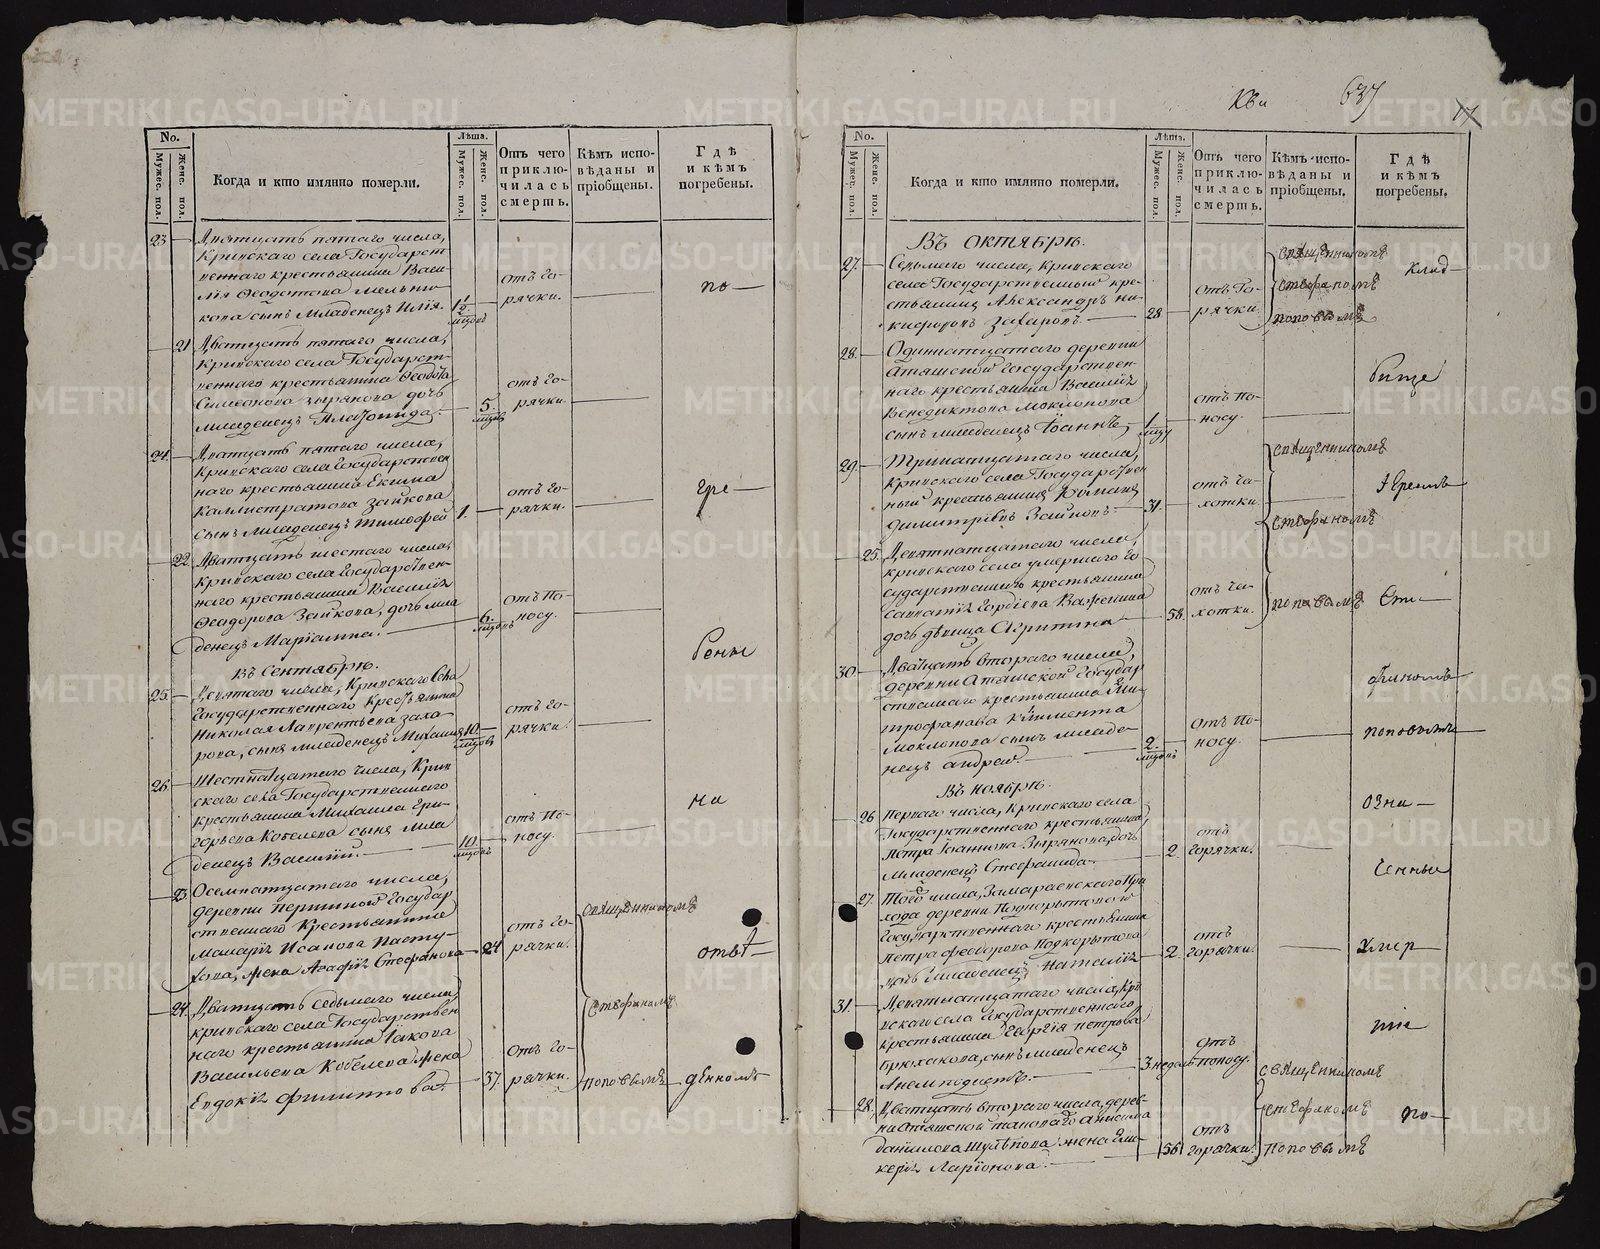 Кви 637
17
No.
Мужес. пол.
Женс. пол.
Когда и кто имянно померли.
Лѣта.
Мужес. пол.
Женс. пол.
Отъ чего приклю-
чилась
смерть.
Кѣмъ испо-
вѣданы и
пріобщены.
Гдѣ
и кѣмъ
погребены.
23 Дватцать пятаго числа,
Кривскаго села Государст
веннаго крестьянина Васи-
лія Ѳеодотова Мельни-
кова сынъ младенецъ Илія. 1½ мцовъ
отъ го-
рячки.
по
21 Дватцать пятаго числа,
Кривскаго села Государст-
веннаго крестьянина Ѳеодота
Симеонова Зырянова дочь
младенецъ 5. мцовъ
отъ го-
рячки.
24. Дватцать пятаго числа,
Кривскаго села Государствен
наго крестьянина Екима
Каллистратова Зайкова
сынъ младенецъ Тимофей 1.
отъ го-
рячки.
гре
22. Дватцать шестаго числа,
Кривскаго села Государствен-
наго крестьянина Василія
Ѳеодорова Зайкова, дочь мла
денецъ Маріамна. 6. мцовъ
отъ по-
носу.
бены
Въ Сентябрѣ.
25. Девятаго числа, Кривскаго села
Государственнаго Крестьянина
Николая Лаврентьева Заха-
рова, сынъ младенецъ Михаилъ 10 мцовъ
отъ го-
рячки.
26. Шестнатцатаго числа, Крив
скаго села Государственнаго
крестьянина Михаила Гри-
горьева Кобелева сынъ мла
денецъ Василій. 10. мцовъ
отъ по-
носу.
на
23. Осемнатцатаго числа,
деревни Першиной Государ
ственнаго Крестьянина
Исакова Пасту-
хова, жена Агафія Стефанова 24
отъ го-
рячки.
священникомъ
отвѣ
24. Дватцать седьмаго числа,
кривскаго села Государствен
наго крестьянина Іакова
Васильева Кобелева жена
Евдокія Филиппова. 37.
отъ го-
рячки.
Стефаномъ
Поповымъ
денномъ
No.
Мужес. пол.
Женс. пол.
Когда и кто имянно померли.
Лѣта.
Мужес. пол.
Женс. пол.
Отъ чего
приклю-
чилась
смерть.
Кѣмъ испо-
вѣданы и
пріобщены.
Гдѣ
и кѣмъ
погребены.
Въ Октябрѣ.
27. Седьмаго числа, Кривскаго
села Государственный кре-
стьянинъ Александръ Ни-
кифоровъ Захаровъ 28
отъ го-
рячки
священникомъ
Стефаномъ
Поповымъ
клад
28. Одинатцатаго деревни
Аташской Государствен-
наго крестьянина Василія
Венедиктова Моклокова
сынъ младенецъ Іоаннъ, 1 мцу
отъ по-
носу.
бище
29. Тринатцатаго числа,
Кривскаго села Государствен
ный крестьянинъ Романъ
Димитріевъ Зайковъ 31.
отъ ча-
хотки.
священникомъ
Стефаномъ
Іереемъ
25. Девятнатцатаго числа,
кривскаго села умершаго Го
сударственнаго крестьянина
Савватія Гордѣева Важенина
дочь дѣвица Агрипина 58.
отъ ча-
хотки.
Поповымъ
Сте-
30. Дватцать втораго числа,
деревни Аташской Государ
ственнаго крестьянина
Климента
Моклокова сынъ младе-
нецъ Андрей. 2. мцовъ
отъ по-
носу.
фаномъ
поповымъ
Въ Ноябрѣ.
26 Перваго числа, Кривскаго села
Государственнаго крестьянина,
Петра Іоаннова Зырянова, дочь
младенецъ Стефанида. 2.
отъ
горячки.
озна
ченные
27. Того числа, Замараевскаго при
хода деревни Подкорытовой
Государственнаго крестьянина
Петра Ѳеодорова Подкорытова
дочь младенецъ Наталія 2.
отъ
горячки.
умер
31. Девятнатцатаго числа, Кри
вскаго села Государственнаго
крестьянина Георгія Петрова
Брюханова, сынъ младенецъ
Анемподистъ. 3 недѣль
отъ
поносу.
шіе
28. Дватцать втораго числа, дерев-
ни Аташской таковаго Анисима
Данилова Шулѣпова жена Гли-
керія Ларіонова. 56
отъ
горячки.
священникомъ
Стефаномъ
Поповымъ
по
METRIKI.GASO-URAL.RU